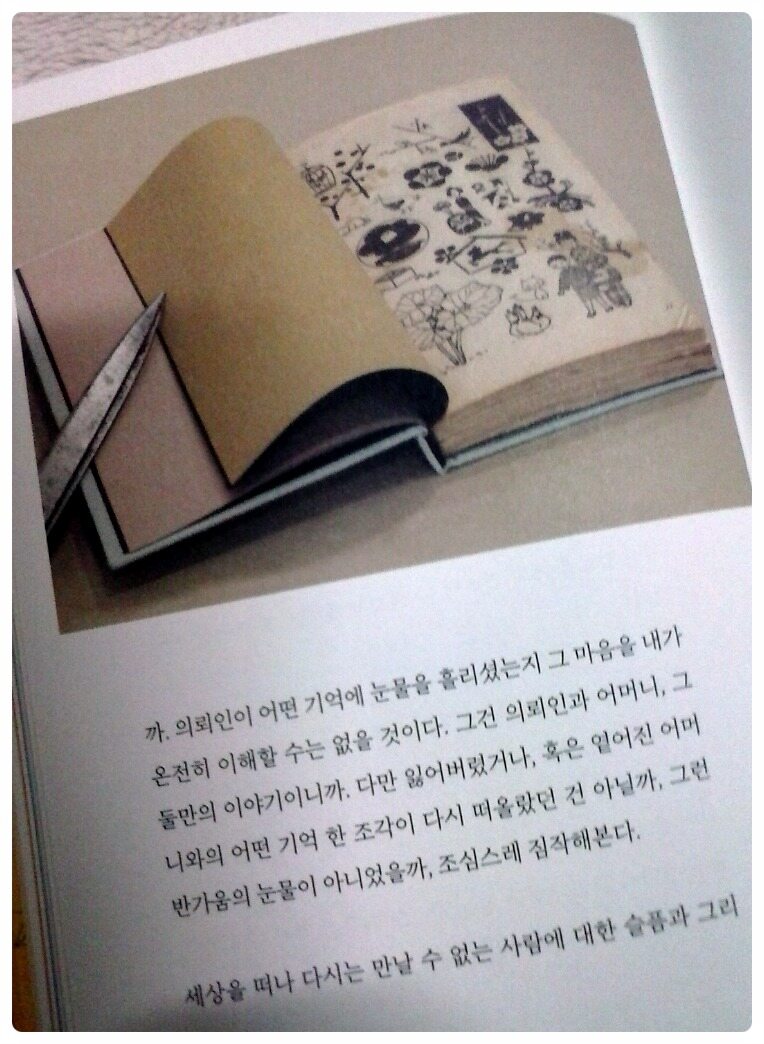 까. 의뢰인이 어떤 기억에 눈물을 흘리셨는지 그 마음을 내가
온전히 이해할 수는 없을 것이다. 그건 의뢰인과 어머니, 그
둘만의 이야기이니까. 다만 잃어버렸거나, 혹은 옅어진 어머
니와의 어떤 기억 한 조각이 다시 떠올랐던 건 아닐까, 그런
반가움의 눈물이 아니었을까, 조심스레 짐작해본다.
세상을 떠나 다시는 만날 수 없는 사람에 대한 슬픔과 그리